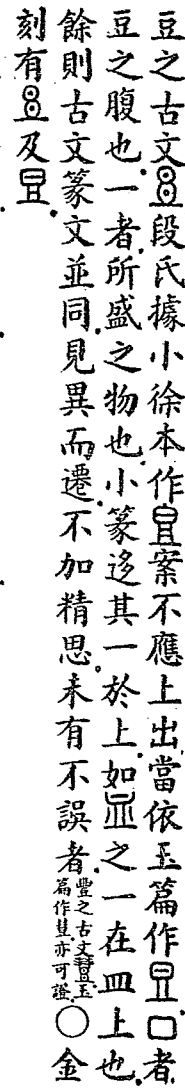 豆之古文𣅋段氏據小徐本作𣅋案不應上出當依玉篇作𣅋口者
豆之腹也一者所盛之物也小篆迻其一於上如血之一在皿上也
餘則古文篆文並同見異而遷不加精思未有不誤者豐之古文玉篇作亦可證〇金
刻有及